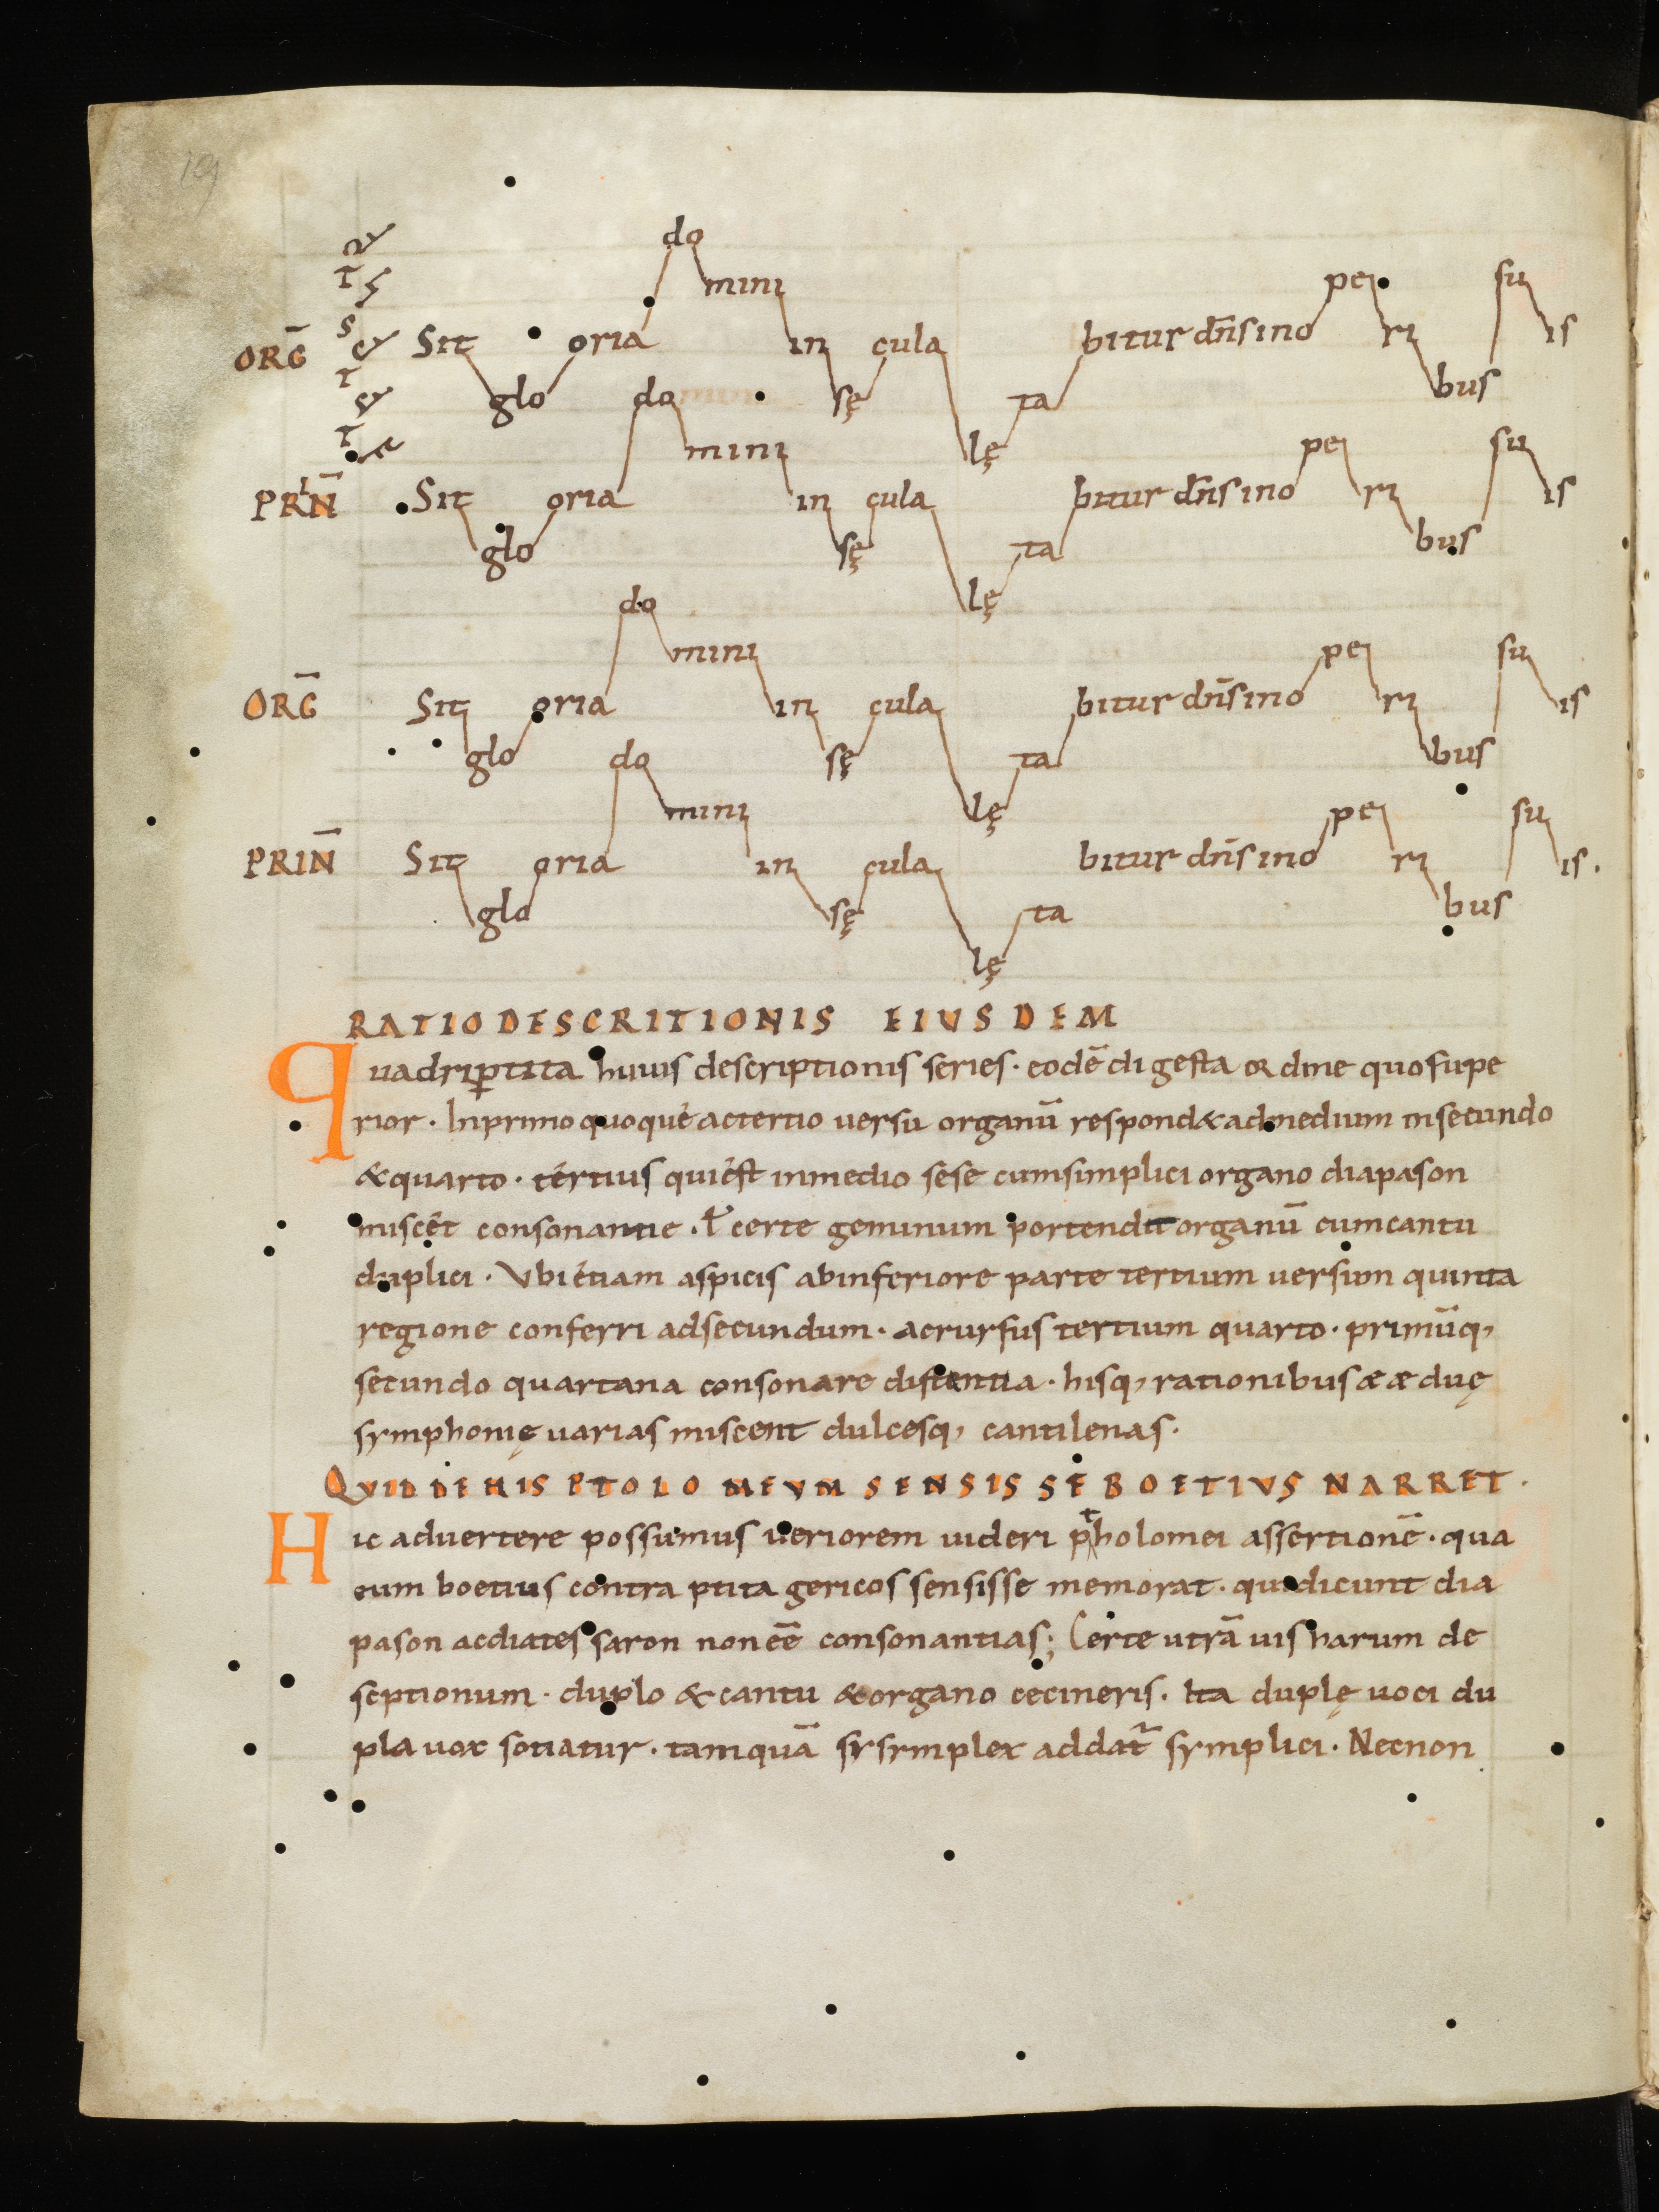 19
do
mini pe su
ORḠ Sit oria in cula bitur dn̄s ino ri is
glo do sę ta bus
mini lę pe su
PRIN̄ Sit oria in cula bitur dn̄s ino ri is
glo sę ta bus
do lę
mini pe su
ORḠ Sit oria in cula bitur dn̄s ino ri is
glo do sę ta bus
mini lę pe su
PRIN̄ Sit oria in cula bitur dn̄s ino ri is.
glo sę ta bus
lę
RATIO DESCRITIONIS EIUSDEM
Quadriꝑtita huius descriptionis series · eodē digesta ordine quo supe
rior · In primo quoque ac tertio versu organū respond& ad medium in secundo
& quarto · tértius qui ést in medio sese cum simplici organo diapason
miscét consonantie · ł certe geminum portendit organū cum cantu
duplici · Vbi étiam aspicis ab inferiore parte tertium versum quinta
regione conferri ad secundum · ac rursus tertium quarto · primūq,
secundo quartana consonare distantia · hisq, rationibus æ æ duę
symphonię varias miscent dulcesq, cantilenas ·
QVID DE HIS PTOLOMEVM SENSISSE BOETIVS NARRET ·
Hic advertere possumus veriorem videri ptholomei assertionē · qua
eum boetius contra pitagericos sensisse memorat · qui dicunt dia
pason ac diatessaron non eē̄ consonantias; Certe utrā vis harum de
scptionum · duplo & cantu & organo cecineris · Ita duplę voci du
pla vox sotiatur · tamquā sysymplex addat᷑ symplici · Necnon